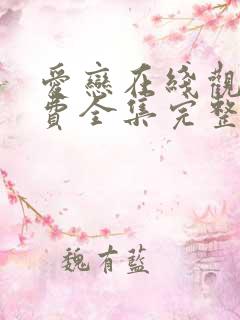 愛戀在綫觀
費全集完整
魏有藍